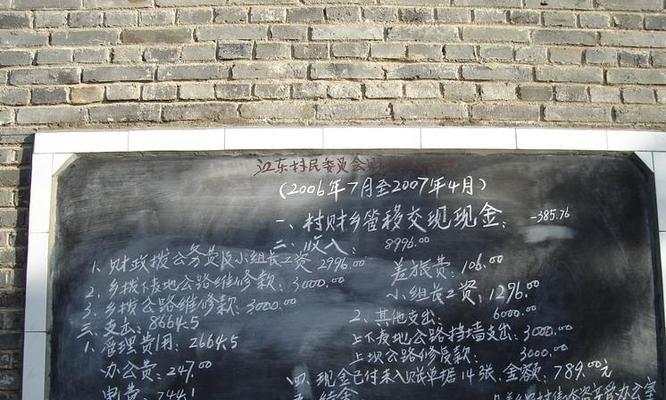 江东村民委员会
(2006年7月至2007年4月)
一、村财乡管移交现现金: -385.76
二、收入: 8996.00
1、财政拨公务费及小组长工资 2996.00
2、乡拨下友地公路维修款: 3000.00
3、乡拨公路维修款: 3000.00
三、支出: 8664.5
1、管理费用: 2664.5
办公费: 247.00
电费: 744.1
差旅费: 106.00
小组长工资: 1296.00
2、其他支出: 6000.00
上下友地公路挡墙支出: 3000.00
上坝公路修反款: 3000.00
四、现金已付未入账单据14张,金额: 789.00元